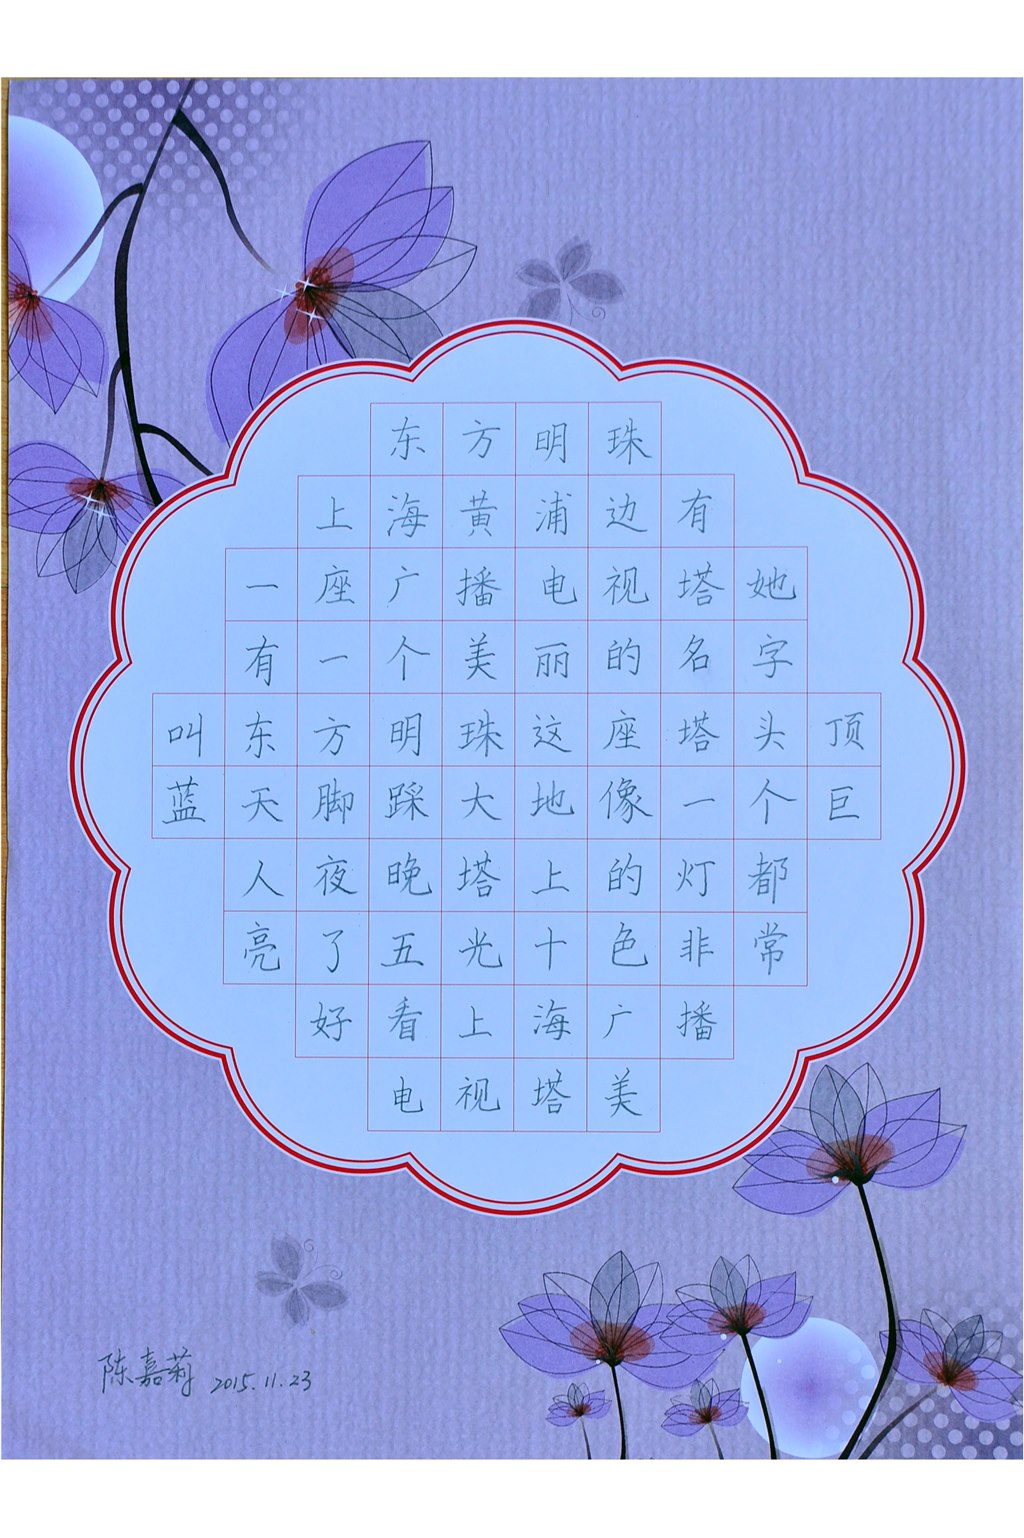 东方明珠
上海黄浦边有
一座广播电视塔她
有一个美丽的名字
叫东方明珠这座塔头顶
蓝天脚踩大地像一个巨
人夜晚塔上的灯都
亮了五光十色非常
好看上海广播
电视塔美
陈嘉莉 2015.11.23